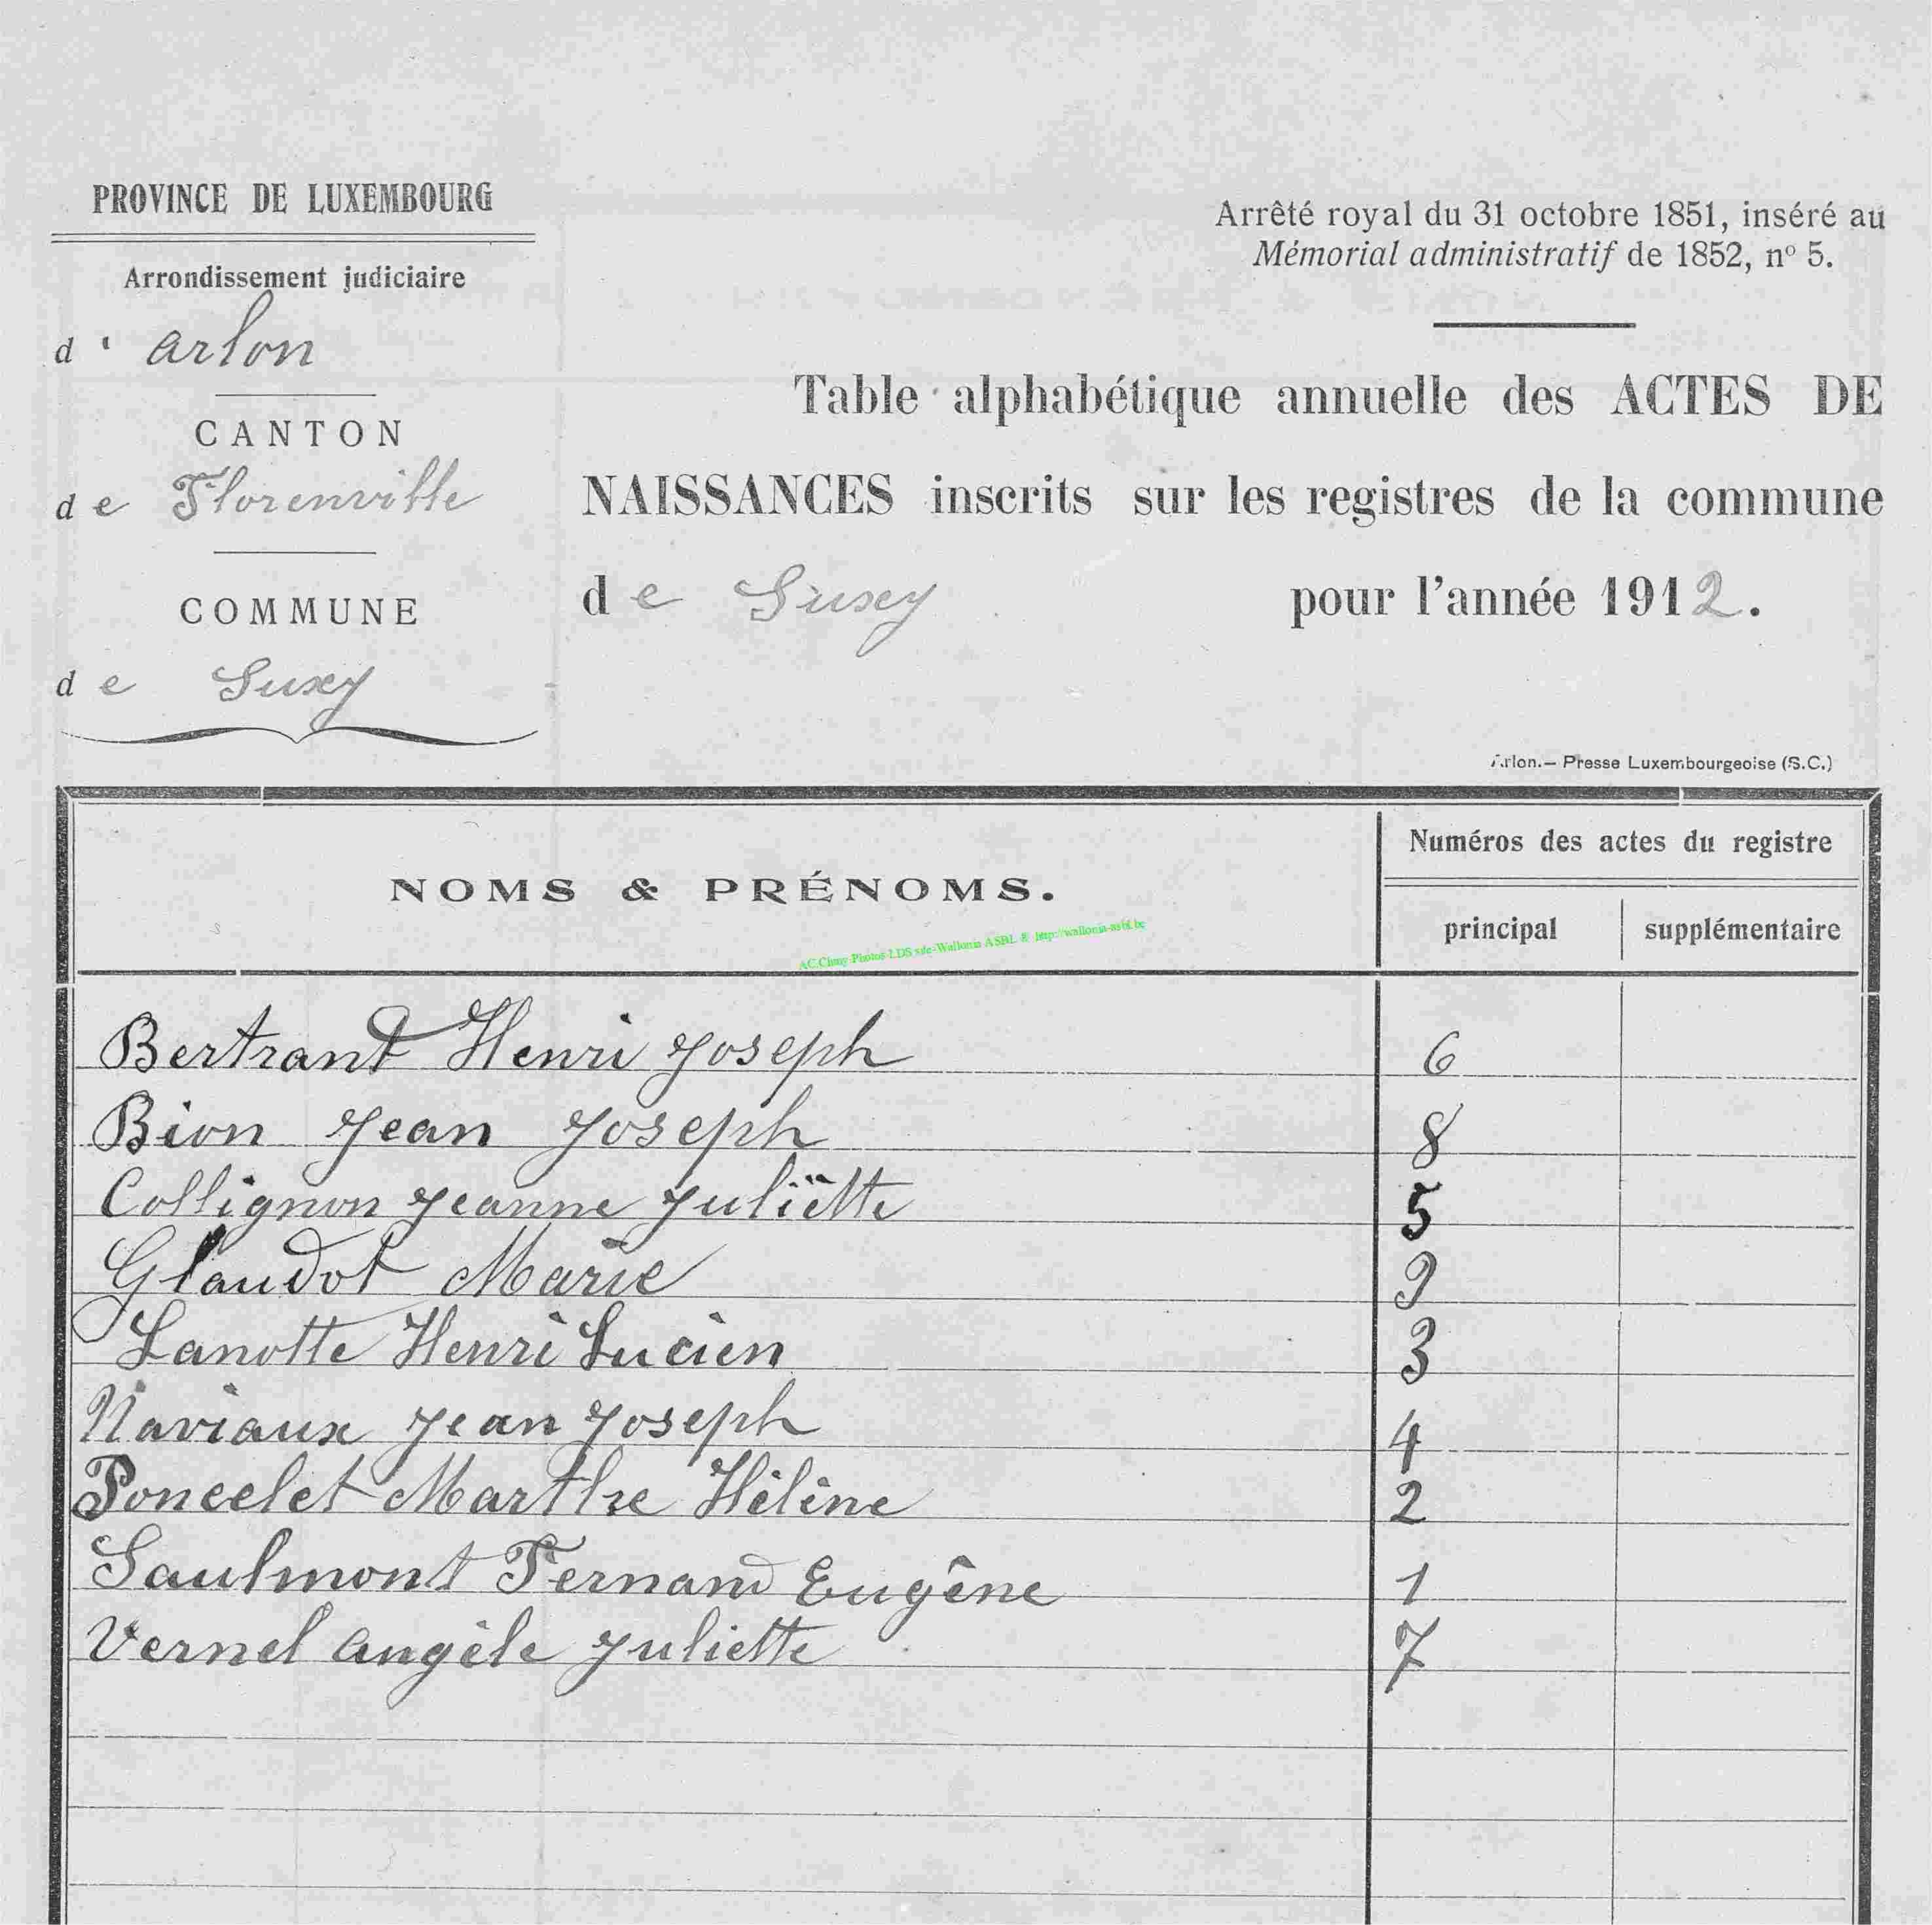 PROVINCE DE LUXEMBOURG
Arrondissement judiciaire
d' Arlon
CANTON
de Florenville
COMMUNE
de Suxy
Arrêté royal du 31 octobre 1851, inséré au
Mémorial administratif de 1852, nº 5.
Table alphabétique annuelle des ACTES DE
NAISSANCES inscrits sur les registres de la commune
de Suxy pour l'année 1912.
Arlon.— Presse Luxembourgeoise (S.C.)
NOMS & PRÉNOMS.
Numéros des actes du registre
principal supplémentaire
AC.Chiny Photos LDS site-Wallonia ASBL & http://wallonia-asbl.be
Bertrand Henri Joseph 6
Bion Jean Joseph 8
Collignon Jeanne Juliëtte 5
Glaudot Marie 9
Lanotte Henri Lucien 3
Naviaux Jean Joseph 4
Poncelet Marthe Hélène 2
Saulmont Fernand Eugène 1
Vernel Angèle Juliette 7